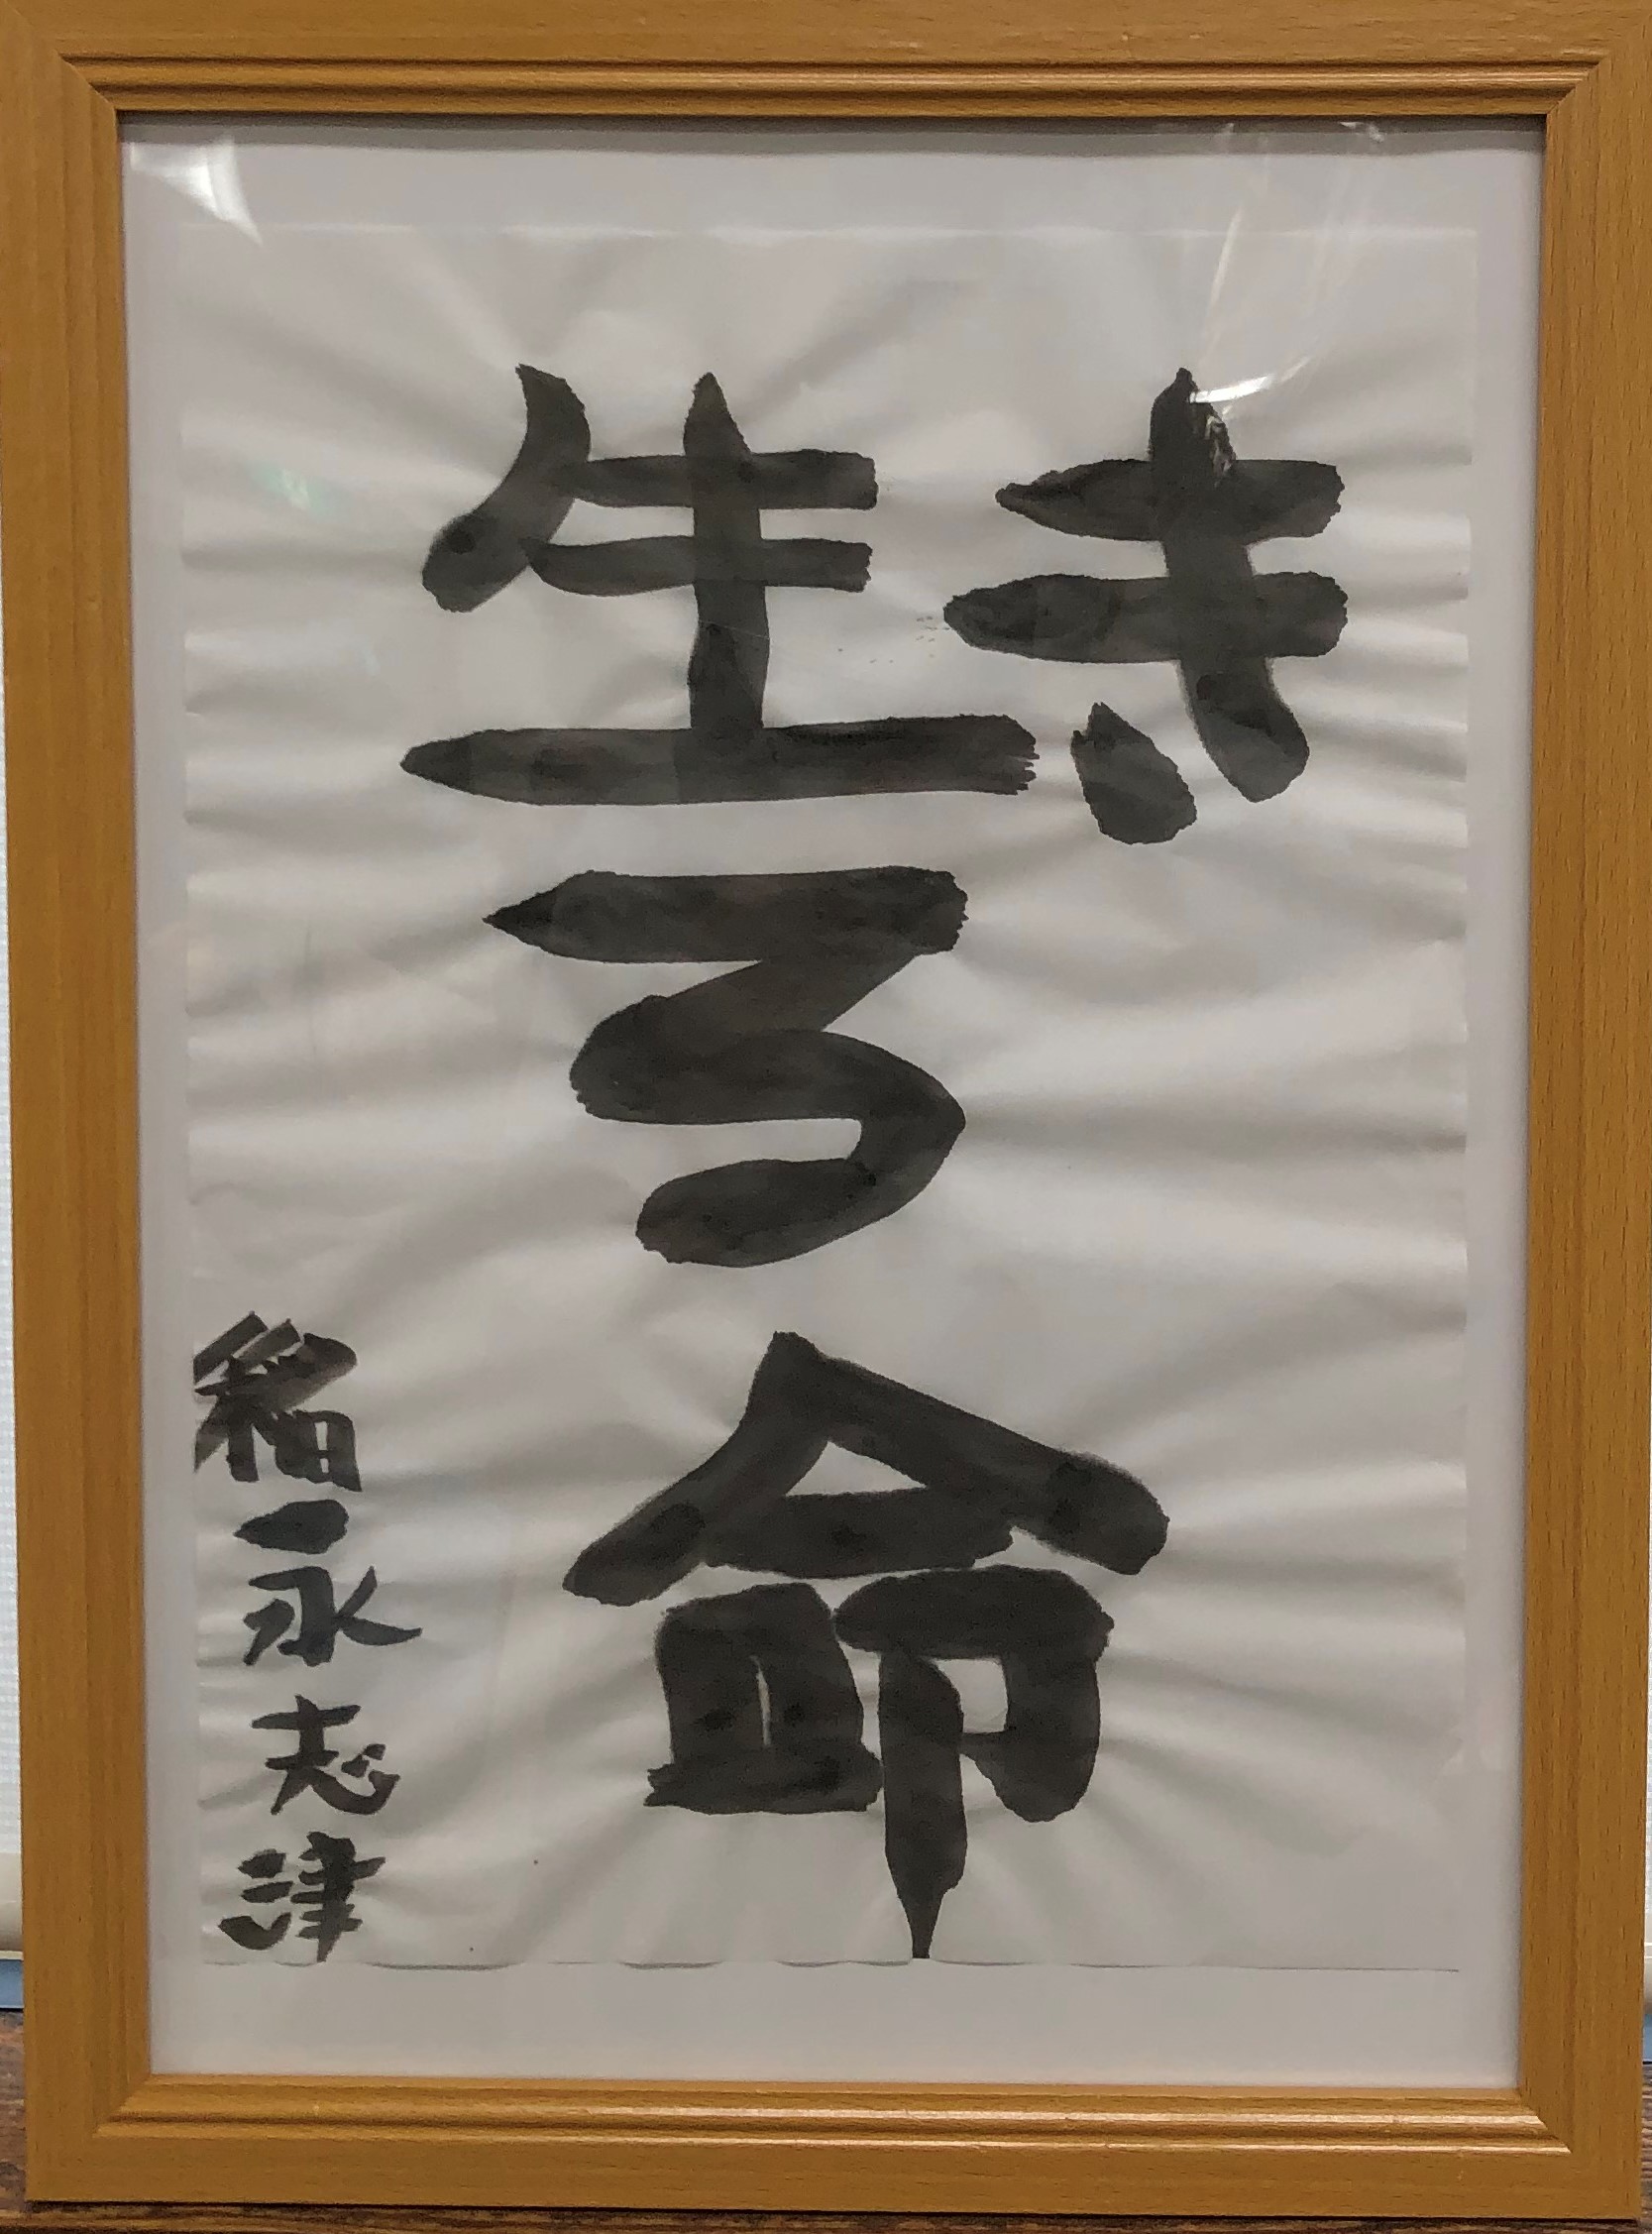 生きる命
稲一永志津